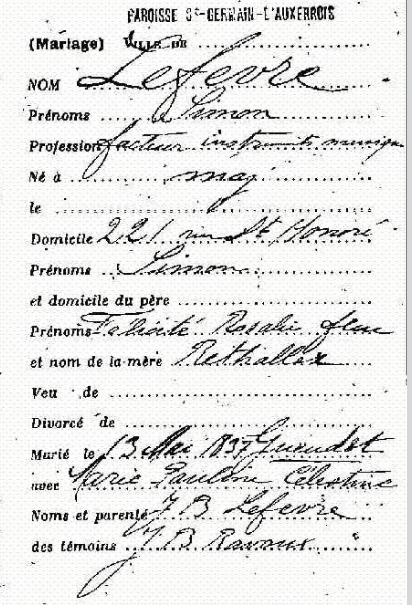 PAROISSE St-GERMAIN-L'AUXERROIS
(Mariage) VILLE DE
NOM Lefevre
Prénoms Simon
Profession facteur instruments musique
Né à maj
le
Domicile 221 rue St Honoré
Prénoms Simon
et domicile du père
Prénoms Félicité Rosalie
et nom de la mère
Veu de
Divorcé de
Marié le 13 Mai 1837 Gueudet
avec Marie Pauline Célestine
Noms et parenté J B Lefevre
des témoins J B Ravoux "